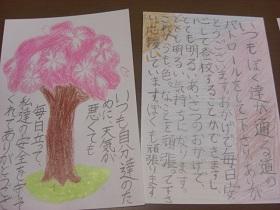 いつも自分達のた
めに、天気が
悪くても
毎日立って、
私達の安全を守って
くれてありがとうござ
いつもぼく達が通る道を
パトロールをして下さってありが
とうございます。おかげで毎日安
心して登校することができますし、
とても明るいあいさつのおかげで、
とても明るい気持ちになります。
これからも色々なことを頑張って下さ
い。応援しています。ぼくも頑張ります。